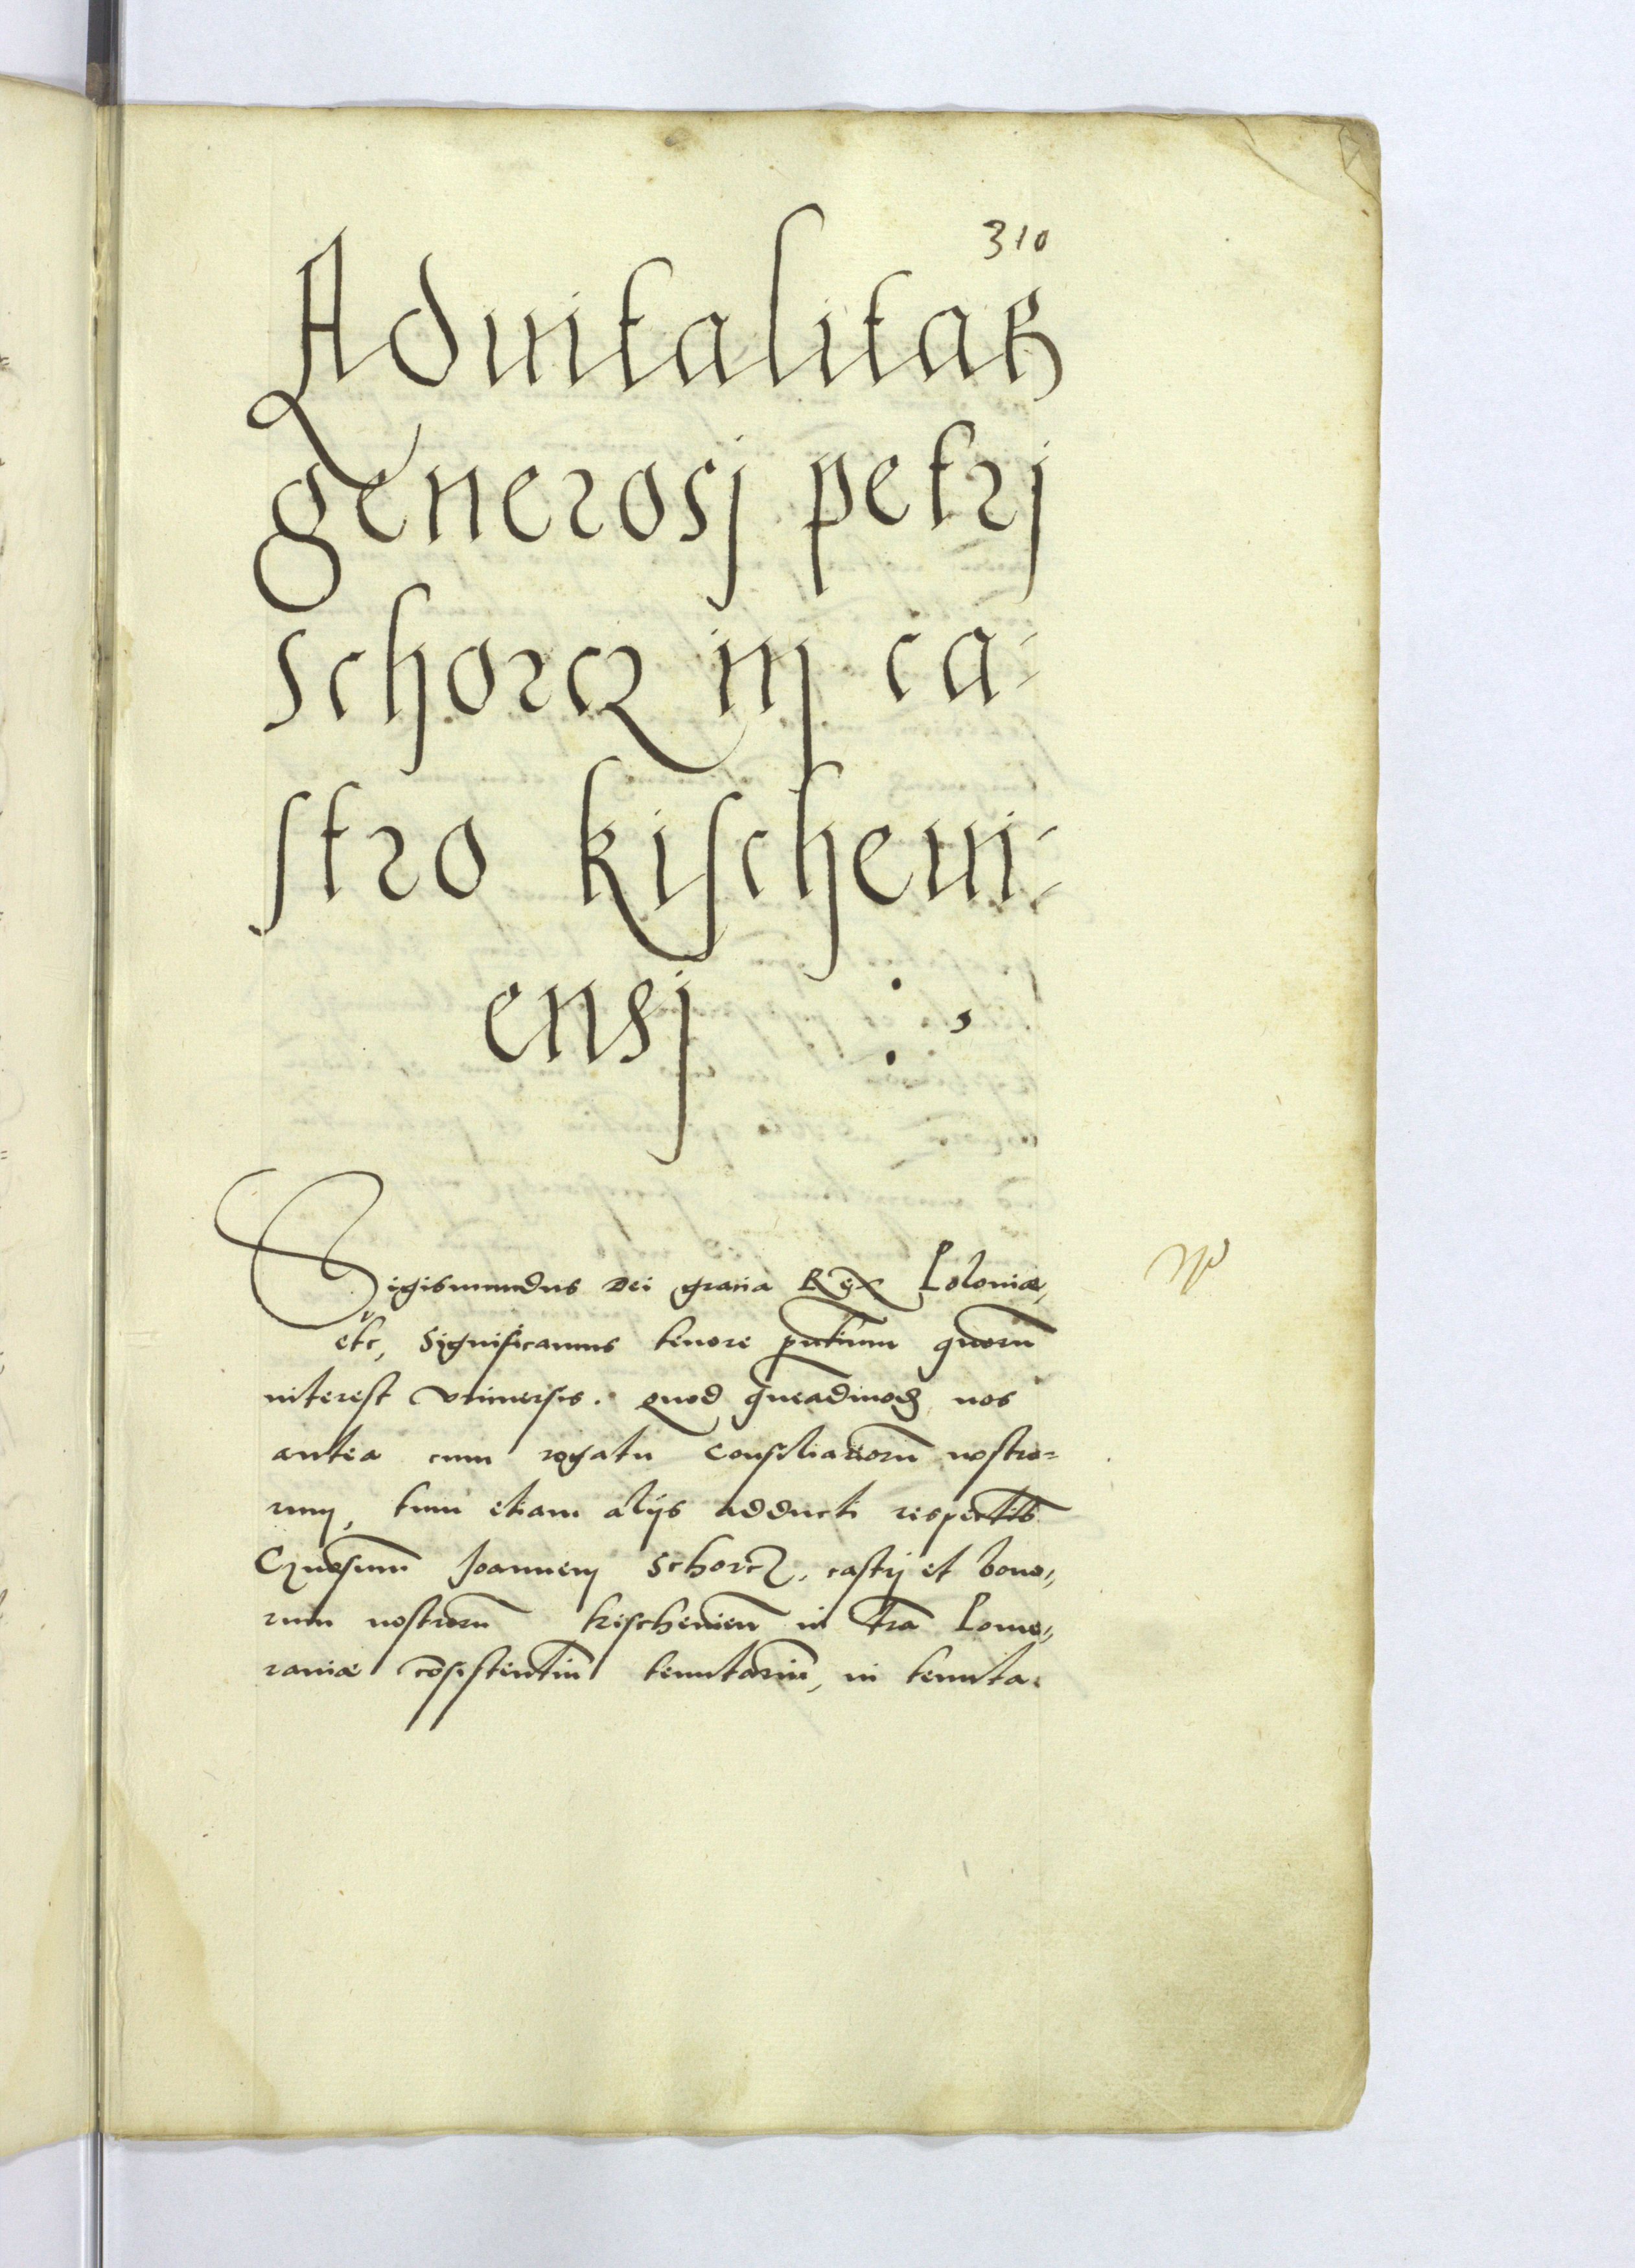 310
Aduitalitas
generosj petrj
schorcz in ca-
stro kischeui-
ensj
Sigismundus Dei gratia Rex Poloniæ,
etc, Significamus tenore pntium quorū
interest Vniuersis. Quod queadmod nos
antea cum rogatu Consiliariorū nostro=
rum, tum etiam alijs adducti respectib
Gnosum Joannem Schorcz, castrj et bono,,
rum nostrorū kischeuien in tra Pome,,
raniæ cōsistentiū tenutariū, in tenuta